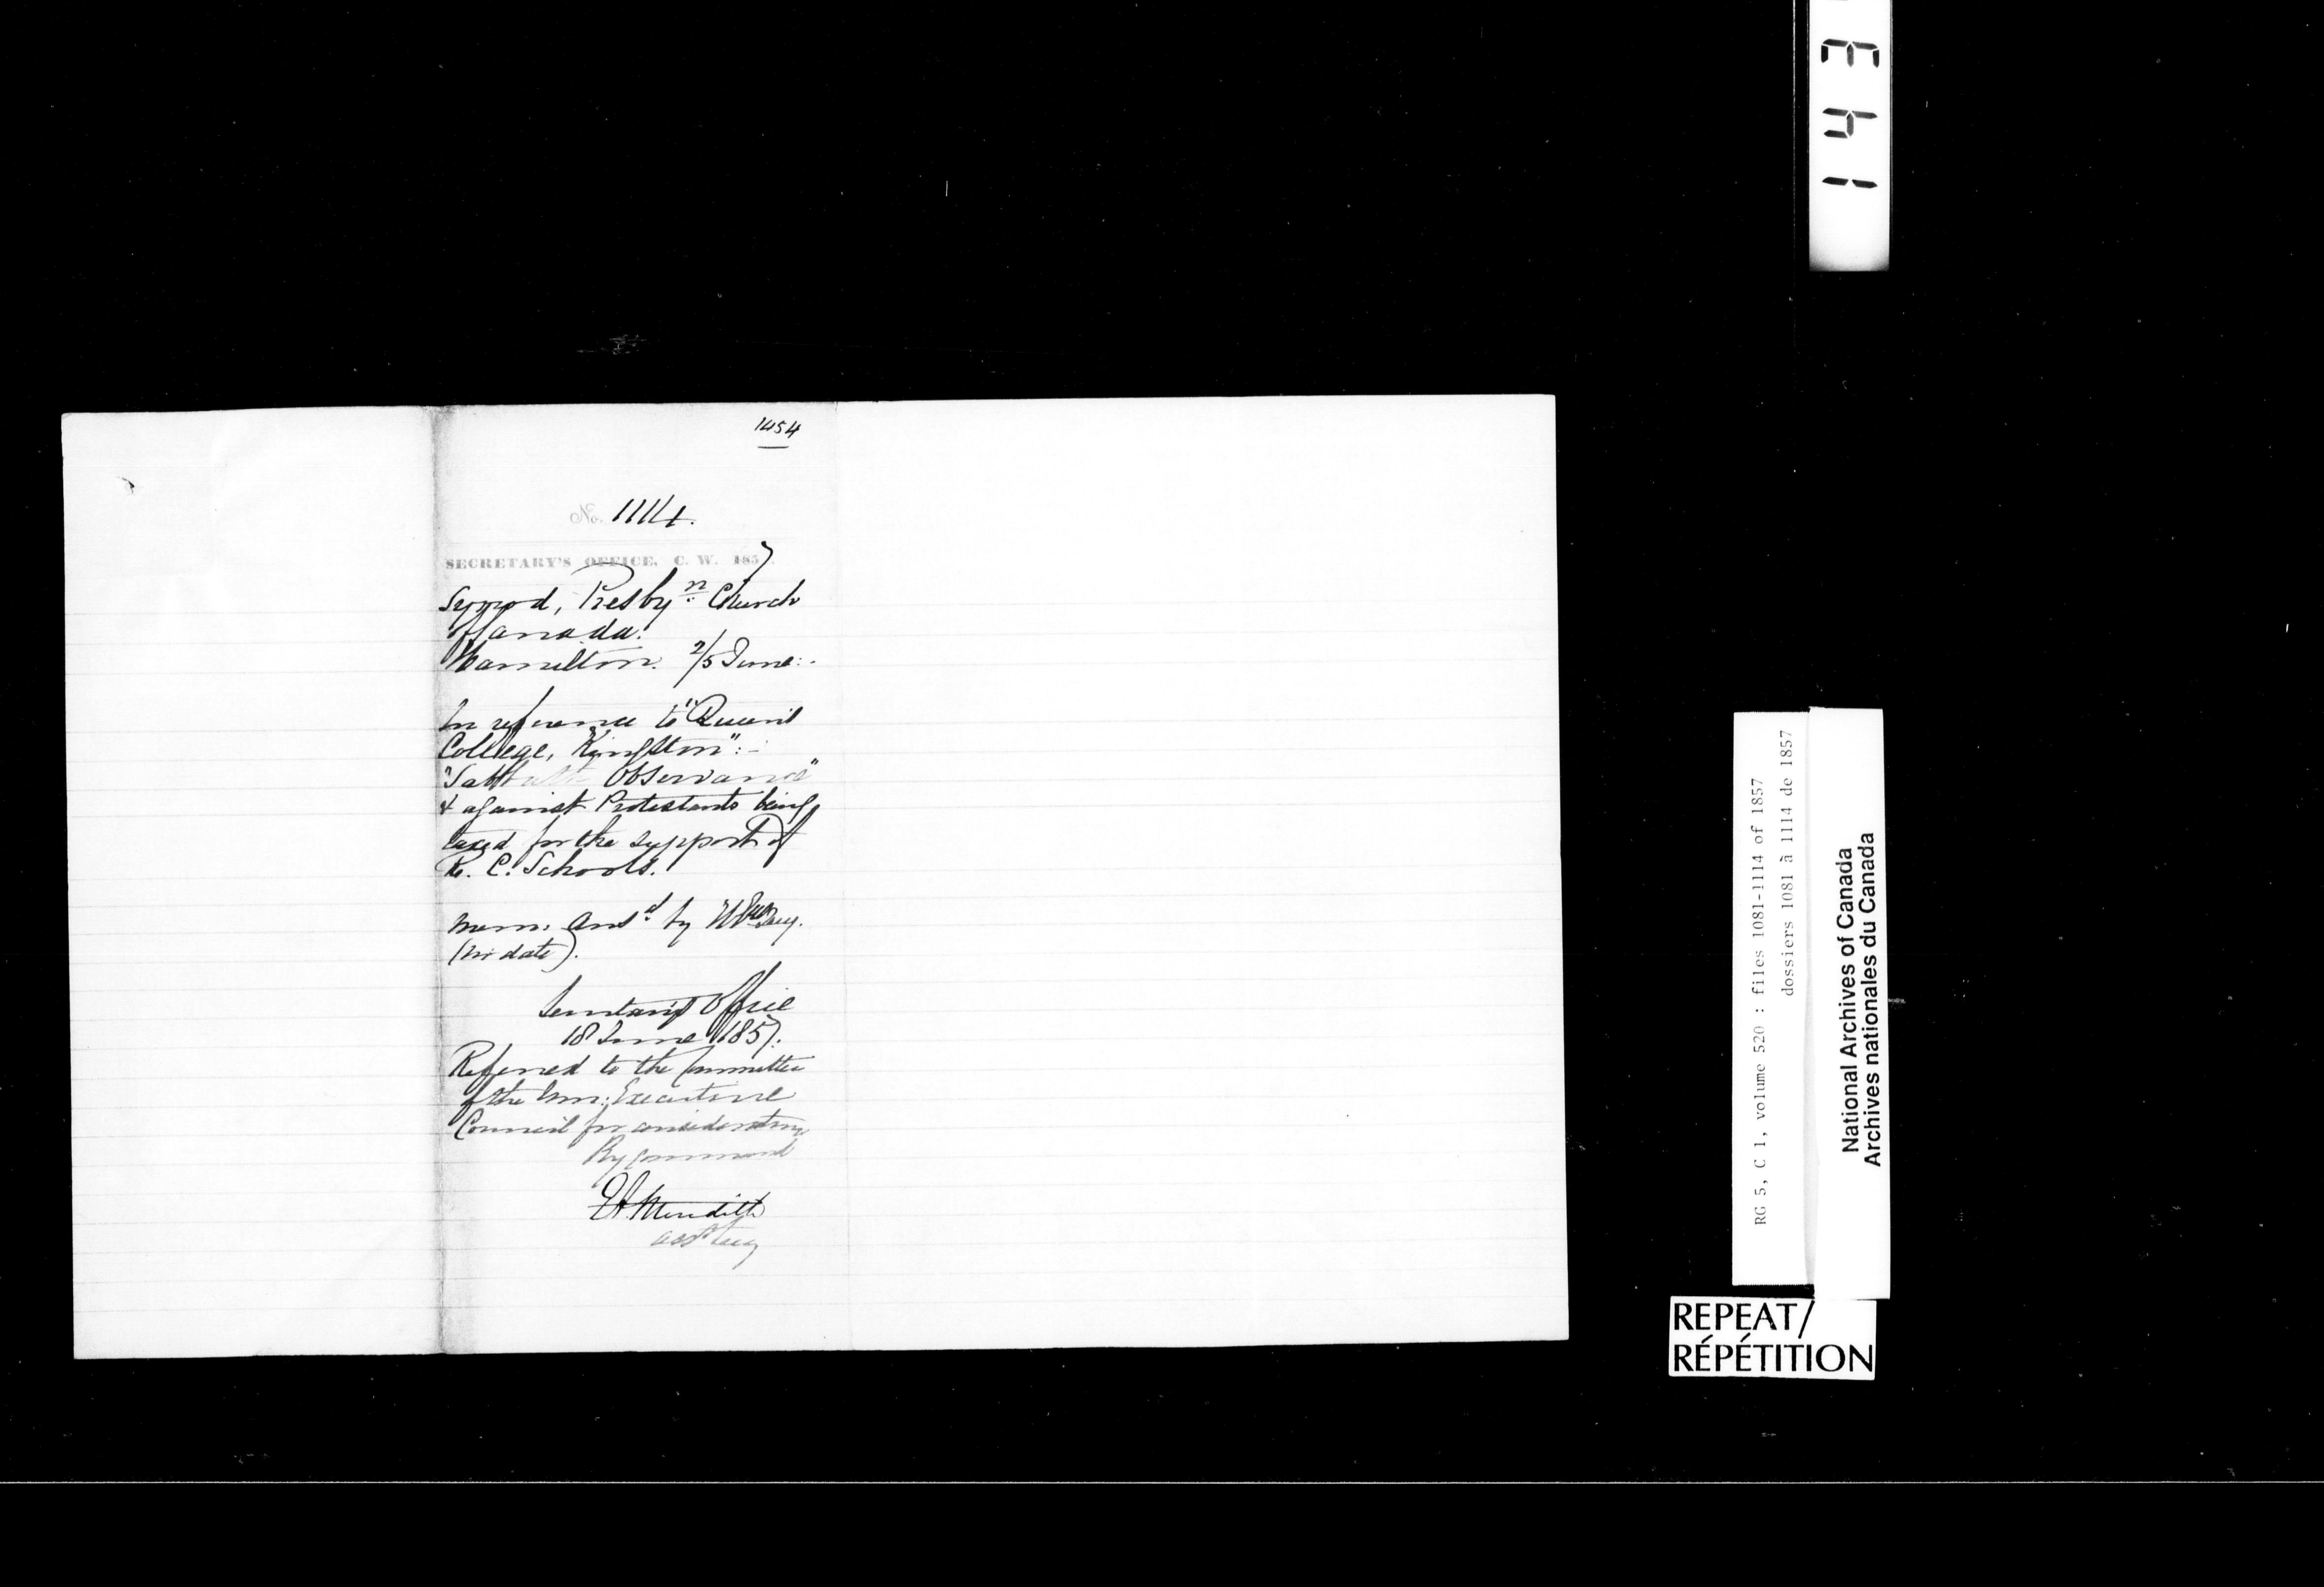 1454
No. 1114.
SECRETARY'S OFFICE, C. W. 1857.
Synod, Presbyn. Church
of Canada.
Hamilton. 2/5 June:.
In reference to "Queen's
College, Kingston":-
"Sabbath Observance"
& against Protestants being
taxed for the support of
R. C. Schools.
Mem. Ansd. by
(no date).
Secretary's Office
18 June 1857.
Referred to the Committee
of the Hon: Executive
Council for consideration
By Command
E A Meredith
Asst Secy
143
RG 5, C 1, volume 520 : files 1081-1114 of 1857
dossiers 1081 à 1114 de 1857
National Archives of Canada
Archives nationales du Canada
REPEAT/
RÉPÉTITION